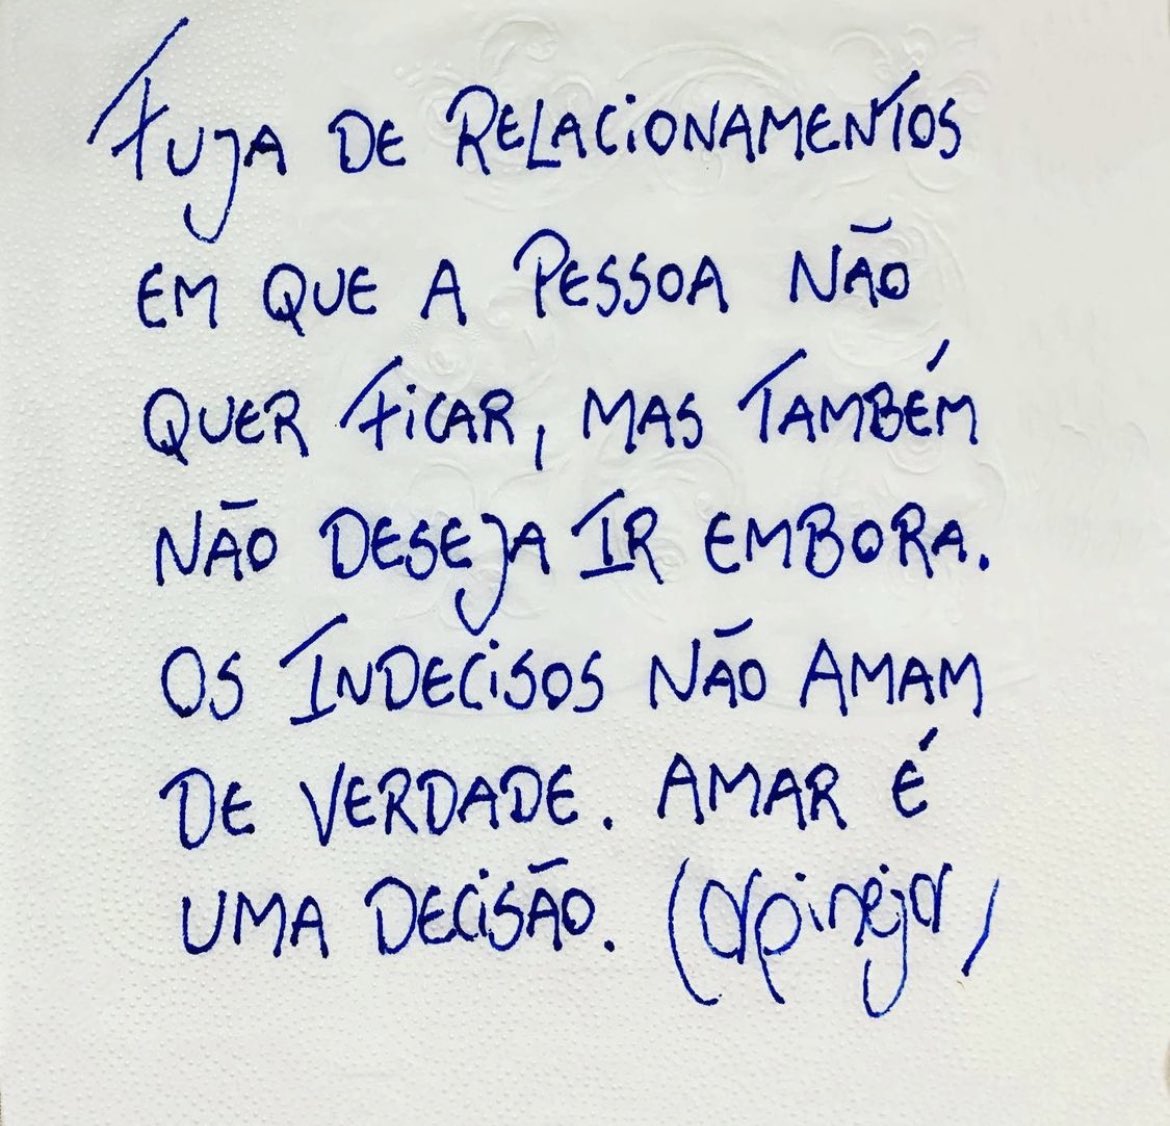 FUJA DE RELACIONAMENTOS
EM QUE A PESSOA NÃO
QUER FICAR, MAS TAMBÉM
NÃO DESEJA IR EMBORA.
OS INDECISOS NÃO AMAM
DE VERDADE. AMAR É
UMA DECISÃO. Carpinejar